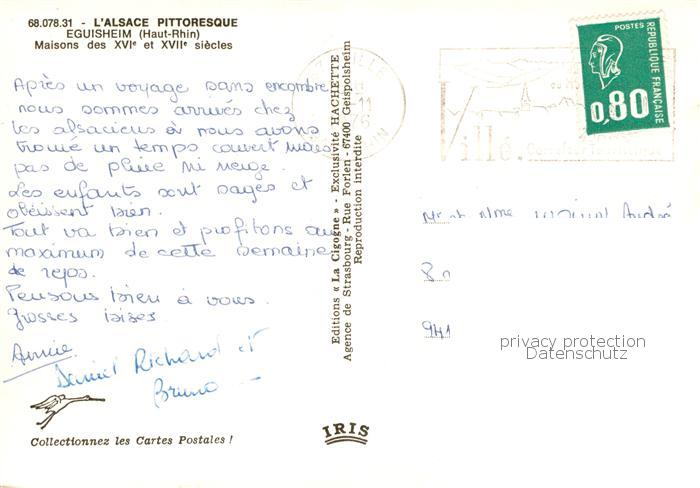 68.078.31 - L'ALSACE PITTORESQUE
EGUISHEIM (Haut-Rhin)
Maisons des XVIe et XVIIe siècles
Après un voyage sans encombre
nous sommes arrivés chez
les alsaciens où nous avons
trouvé un temps couvert mais
pas de pluie ni neige.
Les enfants sont sages et
obéissent bien.
Tout va bien et profitons au
maximum de cette semaine
de repos.
Pensons bien à vous.
Grosses bises
Annie
Daniel Richard et
Bruno
Collectionnez les Cartes Postales !
Editions « La Cigogne » - Exclusivité HACHETTE
Agence de Strasbourg - Rue Forlen - 67400 Geispolsheim
Reproduction Interdite
IRIS
Villé
POSTES
REPUBLIQUE FRANÇAISE
0,80
Mr et Mme André
941
privacy protection
Datenschutz